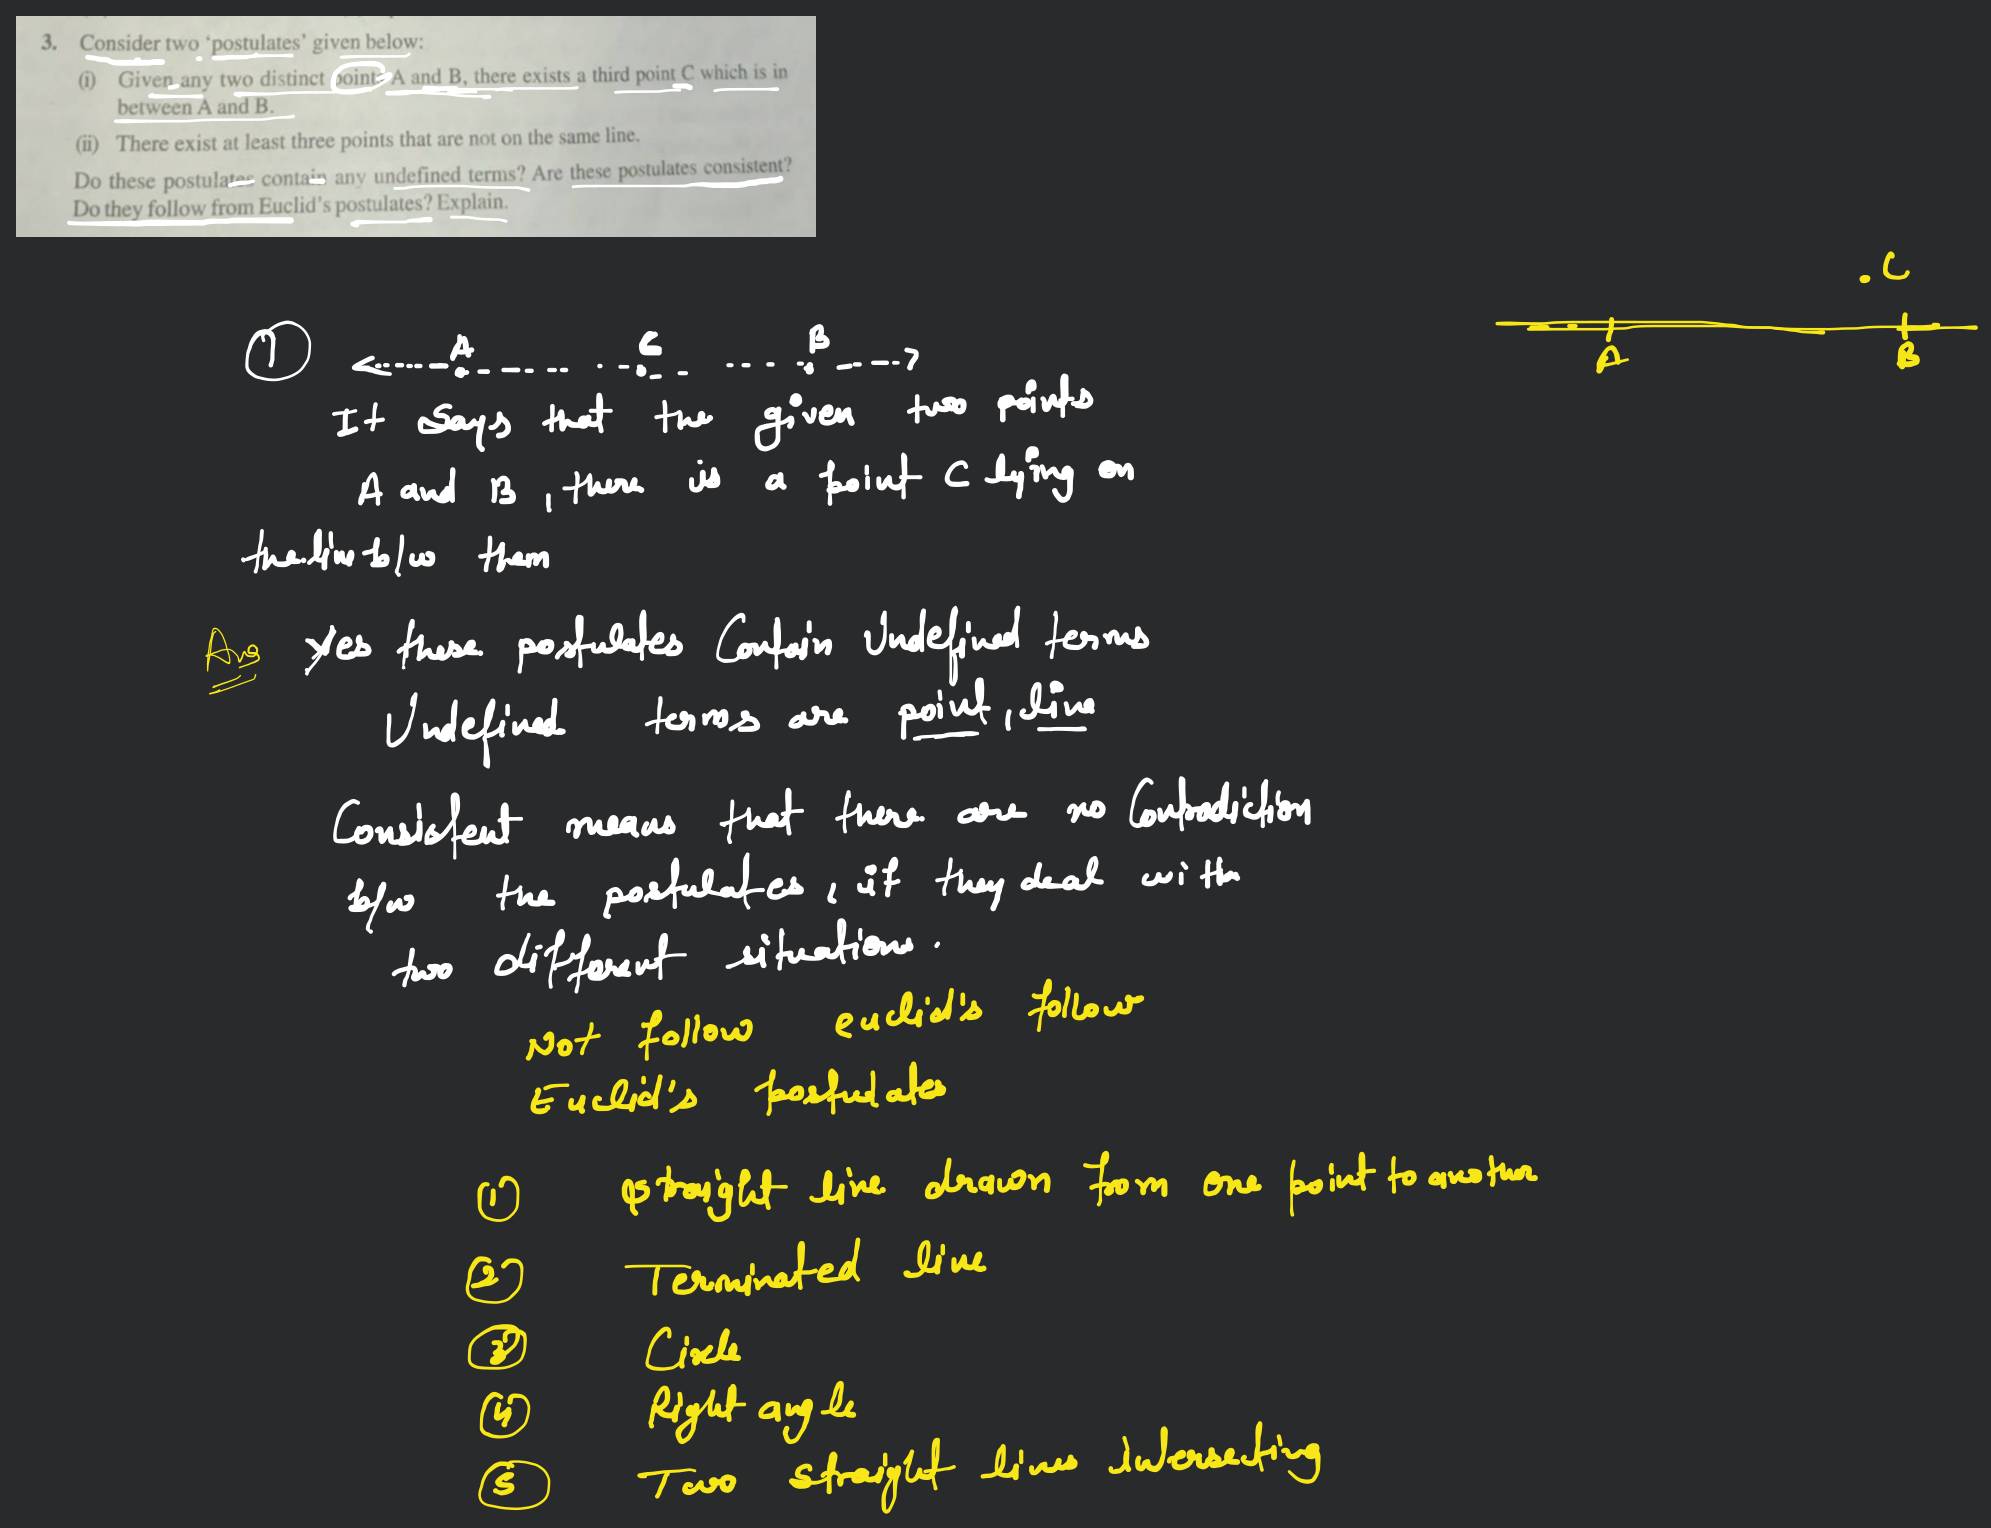 3. Consider two 'postulates' given below:
(i) Given any two distinct points A and B, there exists a third point C which is in
between A and B.
(ii) There exist at least three points that are not on the same line.
Do these postulates contain any undefined terms? Are these postulates consistent?
Do they follow from Euclid's postulates? Explain.
. C
A B
① A C B
It says that the given two points
A and B, there is a point C lying on
the line b/w them
Ans Yes these postulates Contain Undefined terms
Undefined terms are point, line
Consistent means that there are no Contradiction
b/w the postulates, if they deal with
two different situations.
Not follow euclid's follow
Euclid's postulates
① straight line drawn from one point to another
② Terminated line
③ Circle
④ Right angle
⑤ Two straight lines intersecting